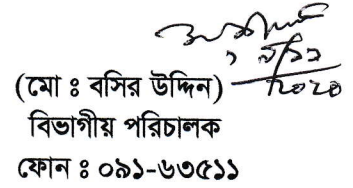 (মো ঃ বসির উদ্দিন)
বিভাগীয় পরিচালক
ফোন ঃ ০৯১-৬৩৫১১